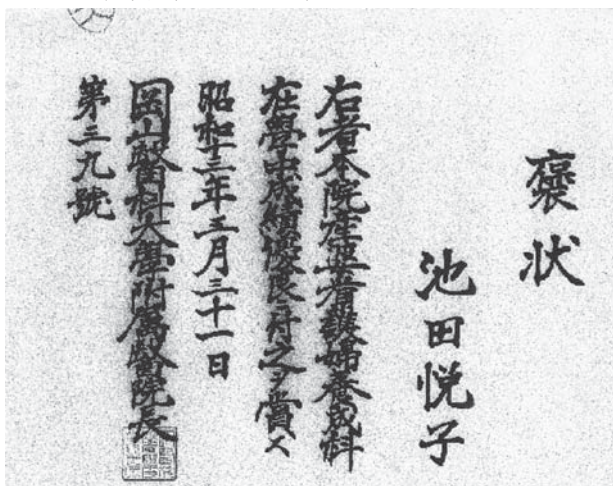 褒状
池田悦子
右者本院産婆看護婦養成科
在學中成績優良ニ付之ヲ賞ス
昭和十三年三月三十一日
岡山醫科大學附属醫院長
第三九號